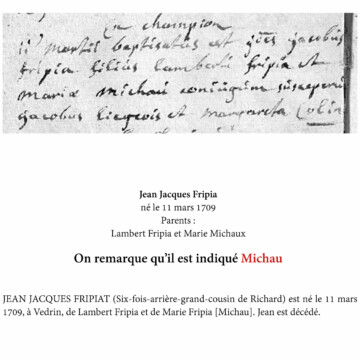 en champion
11 martii baptisatus est joēs jacobus
fripia filius lamberti fripia et
mariæ michau coniugum susceperunt
jacobus liegeois et margareta Colin
Jean Jacques Fripia
né le 11 mars 1709
Parents :
Lambert Fripia et Marie Michaux
On remarque qu'il est indiqué Michau
JEAN JACQUES FRIPIAT (Six-fois-arrière-grand-cousin de Richard) est né le 11 mars
1709, à Vedrin, de Lambert Fripia et de Marie Fripia [Michau]. Jean est décédé.